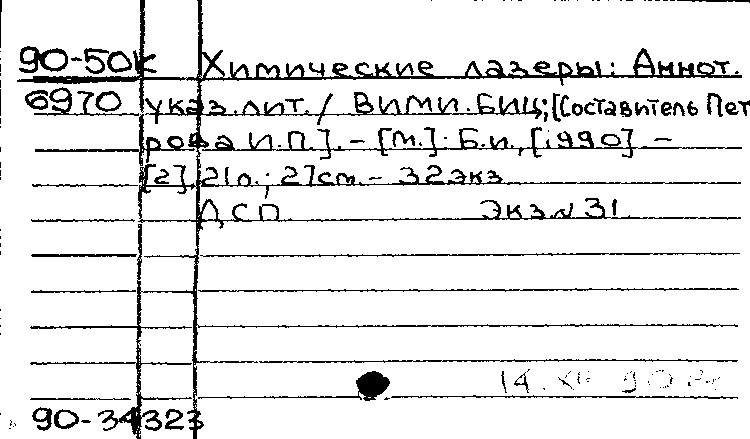 90-50к Химические лазеры: Аннот.
6970 указ.лит./ ВИМИ.БИЦ;[Составитель Пет
рова И.П.].-[М.]: Б.и.,[1990].-
[2],21л.; 27см.- 32экз
ДСП Экз№31
14.XII 90
90-34323